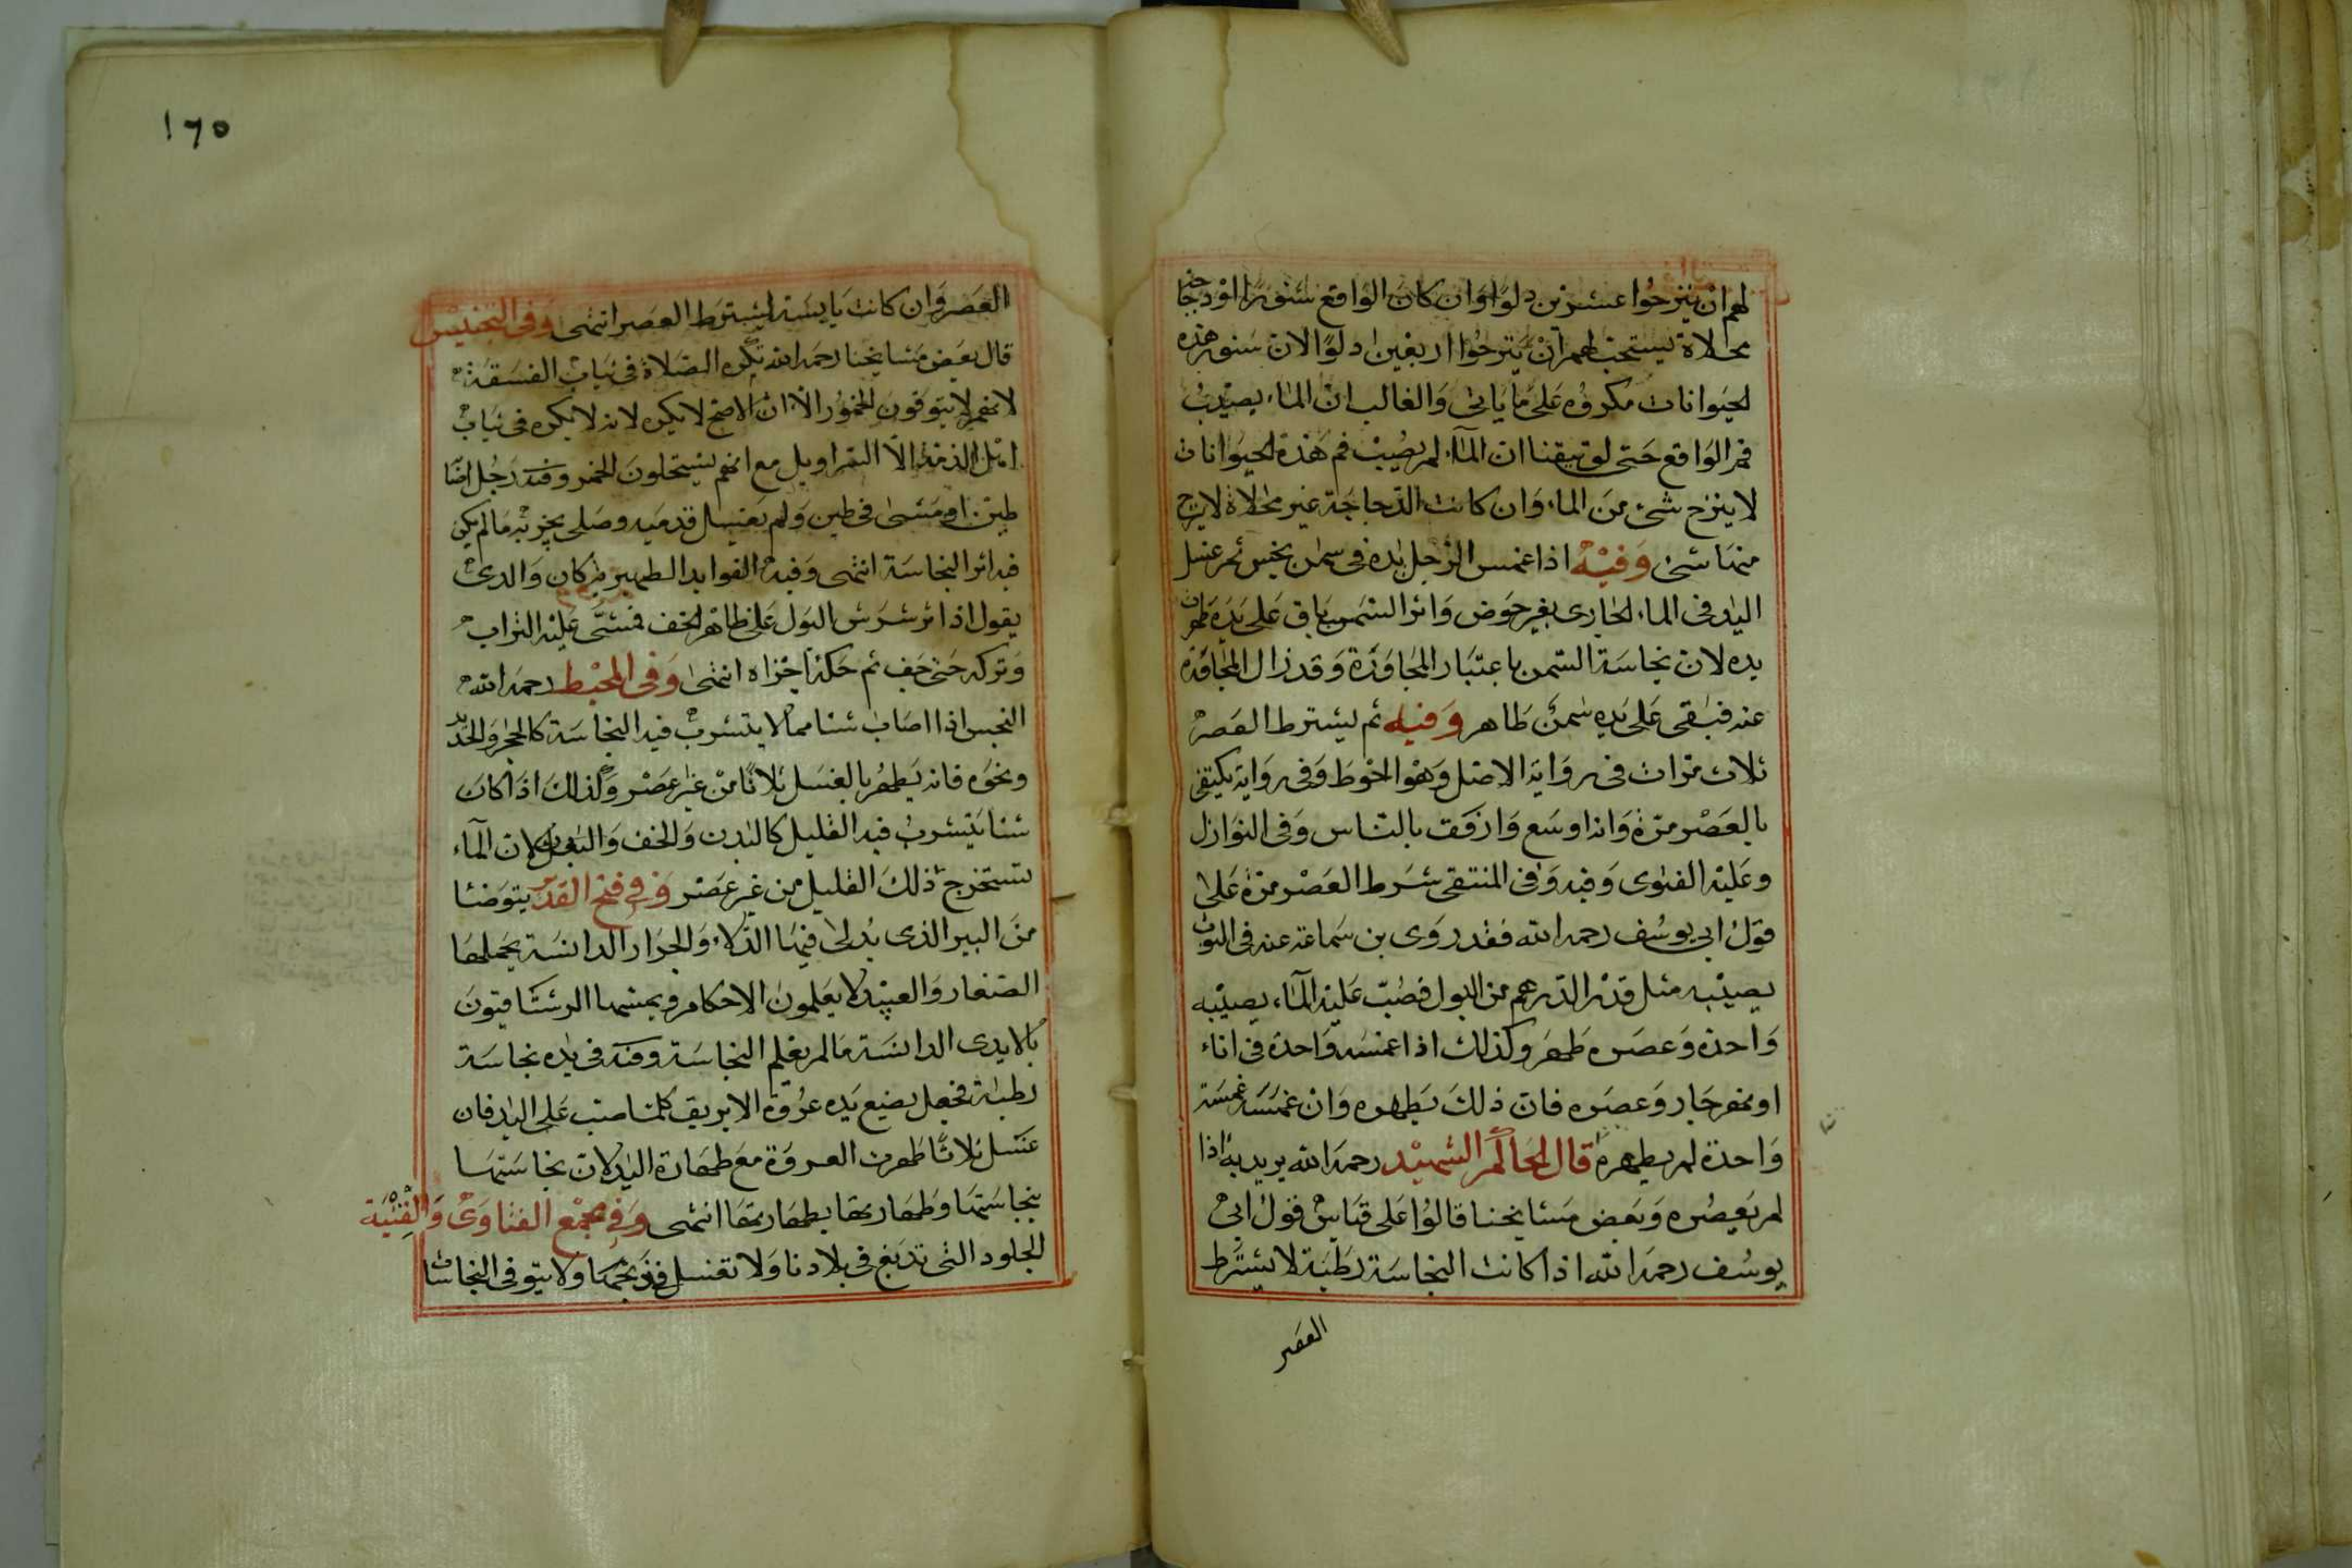 لهم ان ينزحوا عشرين دلوا وان كان الواقع سنورا او دجاجة
مخلاة يستحب لهم ان ينزحوا اربعين دلوا لان سنور هذه
الحيوانات مكروه على ما ياتى والغالب ان الماء يصيب
فم الواقع حتى لو تيقنا ان الماء لم يصيب فم هذه الحيوانات
لا ينزح شئ من الماء وان كانت الدجاجة غير مخلاة لا ينزح
منها شئ وفيه اذا غمس الرجل يده فى سمن نجس ثم غسل
اليد فى الماء الجارى بغير حوض واثر السمن باق على يده طهرت
يده لان نجاسة السمن باعتبار المجاورة وقد زال المجاورة
عنه فبقى على يده سمن طاهر وفيه ثم يشترط العصر
ثلاث مرات فى رواية الاصل وهو احوط وفى رواية يكتفى
بالعصر مرة وانه اوسع وارفق بالناس وفى النوازل
وعليه الفتوى وفيه وفى المنتقى شرط العصر مرة على
قول ابى يوسف رحمه الله فقد روى بن سماعة عنه فى الثوب
يصيبه مثل قدر الدرهم من البول فصب عليه الماء يصيبه
واحدة وعصره طهر وكذلك اذا غمسه واحدة فى اناء
او نهر جار وعصره فان ذلك يطهره وان غمسه غمسة
واحدة لم يطهره قال الحاكم الشهيد رحمه الله يريد به اذا
لم يعصره وبعض مشايخنا قالوا على قياس قول ابى
يوسف رحمه الله اذا كانت النجاسة رطبة لا يشترط
العصر
١٦٥
العصر وان كانت يابسة يشترط العصر انتهى وفى التجنيس
قال بعض مشايخنا رحمه الله تكره الصلاة فى ثياب الفسقة
لانهم لا يتوقون الخمور الا ان الاصح لا يكره لانه لا يكره فى ثياب
اهل الذمة الا السراويل مع انهم يستحلون الخمر وفيه رجل اصابه
طين او مشى فى طين ولم يغسل قدميه وصلى يجزيه ما لم يكن
فيه اثر النجاسة انتهى وفيه الفوايد الظهيرية كان والدى
يقول اذا ترشرش البول على ظاهر الخف فمشى عليه التراب
وتركه حتى جف ثم حكه اجزاه انتهى وفى المحيط رحمه الله
النجس اذا اصاب شئا مما لا يتشرب فيه النجاسة كالحجر والحديد
ونحوه فانه يطهر بالغسل ثلاثا من غير عصر وكذلك اذا كان
شئا يتشرب فيه القليل كالبدن والخف والنعل لان الماء
يستخرج ذلك القليل من غير عصر وفى فتح القدير يتوضئا
من البير الذى يدلى فيها الدلاء والجرار الدانسة يحملها
الصغار والعبيد لا يعلمون الاحكام ويمسها الرستاقيون
بالايدى الدانسة ما لم يعلم النجاسة وفيه فى يده نجاسة
رطبة فجعل يضع يده عروة الابريق كلما صب على اليد فان
غسل ثلاثا طهرت العروة مع طهارة اليد لان نجاستها
بنجاستها وطهارتها بطهارتها انتهى وفى مجمع الفتاوى والقنية
الجلود التى تدبغ فى بلادنا ولا تغسل ولا يتوقى النجاسات